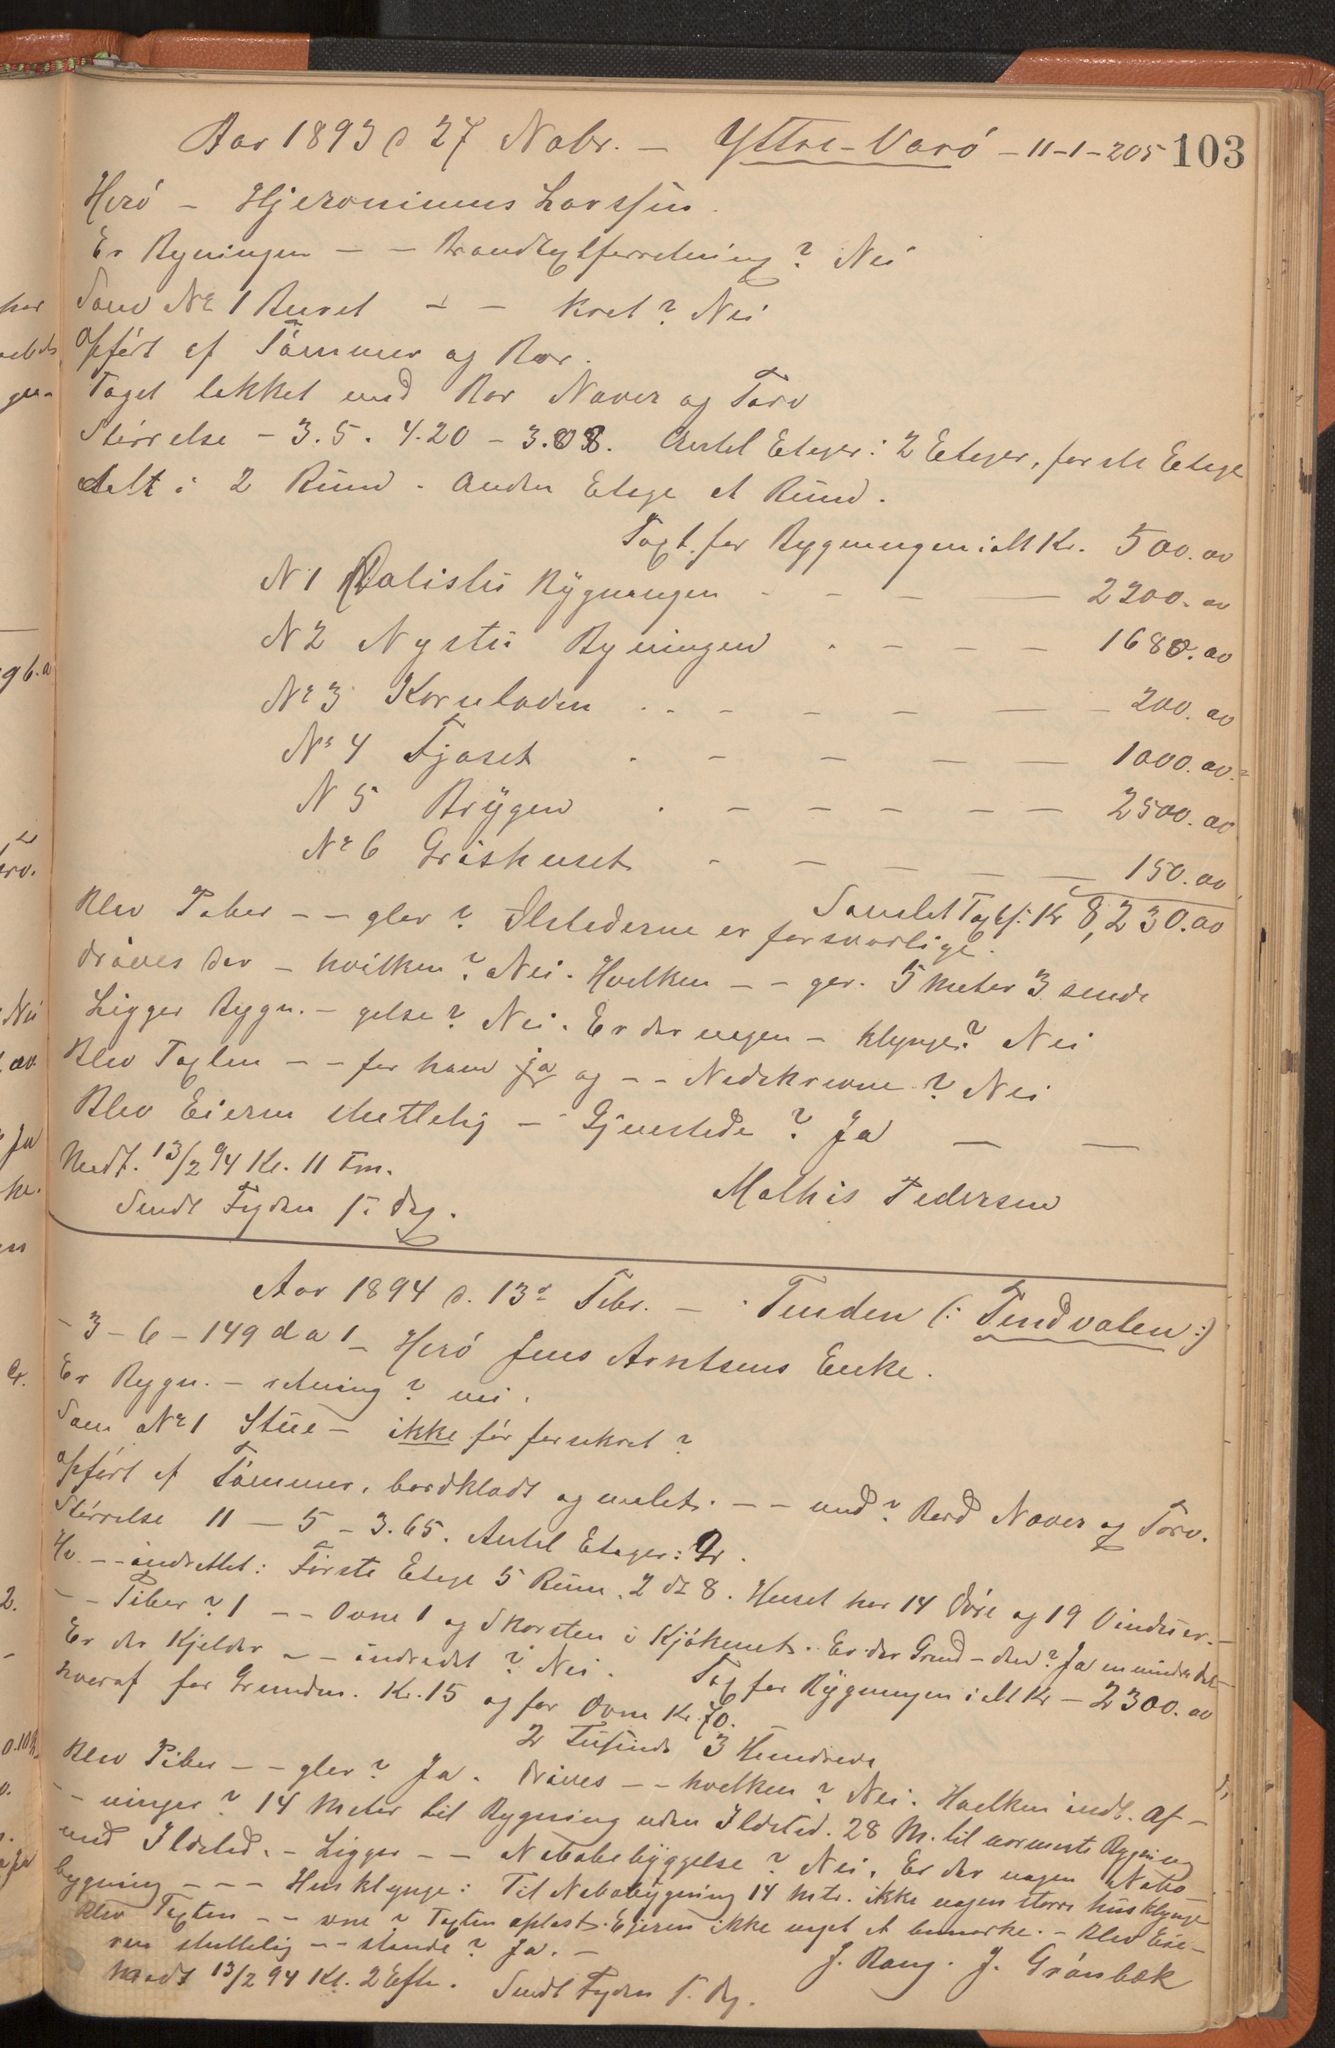 Aar 1893 d 27 Nobr. – Yttre-Varö – 11-1-205 103
Herö – Hjeronimus Larssen.
Er Bygningen – – Brandtaxtforretning? Nei
Som No 1 Buret – – kret? Nei
Opfört af Tömmer og Bor.
Taget tekket med Bor Never og Torv
Störrelse – 3.5. 4.20 – 3.08. Antal Etager: 2 Etager, förste Etage
delt i 2 Rum. Anden Etage et Rum.
Taxt for Bygningen ialt Kr. 500.00
N 1 Bygningen – – – 2200.00
N 2 Nystu Bygningen . – – – 1680.00
No 3 Kornladen . – – – – 200.00
No 4 Fjøset . – – – – 1000.00
N 5 Bryggen . – – – – – 2500.00
No 6 Grishuset – – – – 150.00
Samlet Taxt: Kr 8,230.00
Blev Piber – – gler? Ildstederne er forsvarlige.
Drives der – hvilken? Nei. Hvilken – – ger. 5 meter 3 sende
Ligger Bygn. – gelse? Nei. Er der nogen – klynge? Nei
Blev Taxten – – for ham ja og – – Nedskrevne? Nei
Blev Eieren skriftelig – Gjenstede? Ja – –
Medt. 13/2 94 Kl. 11 Fm.
Mathis Pedersen
Sendt Fogden s. dag.
Aar 1894 d. 13de Febr. – Tenden (: Tendvalen :)
– 3 – 6 – 149 da 1 – Herö Jens Arntsens Enke.
Er Bygn. – retning? nei.
Som No 1 Stue – ikke för forsikret?
Opfört af Tömmer, bordkladt og malet. – – med? Bord Never og Torv.
Störrelse 11 – 5 – 3.65. Antal Etager: 2.
Hv. – – indrettet: Förste Etage 5 Rum. 2 de 8. Huset har 14 Döre og 19 Vinduer. –
– – Piber? 1 – – Ovne 1 og Skorsten i Kjökkenet. Er der Grund – den? Ja en mindre del –
Er der Kjelder – – indredet? Nei. Tax for Bygningen ialt Kr – 2300.00
hvoraf for Grunden. Kr. 15 og for Ovne Kr. 70.
2 Tusinde 3 Hundrede
Blev Piber – – gler? Ja. Drives – – hvilken? Nei. Hvilken indb. Af –
– ninger? 14 Meter til Bygning uden Ildsted. 28 M. til nærmeste Bygning
med Ildsted. – Ligger – – Nabobebyggelse? Nei. Er der nogen Nabo –
bygning – – – Husklynge: Til Nabobygning 14 mtr. ikke nogen större husklynge
Blev Taxten – – vne? Taxten oplæst. Ejeren ikke noget at bemærke. – Blev Eie –
ren skriftelig – – stande? Ja. –
J. Bang. J. Grönbæk
Medt 13/2 94 Kl. 2 Efm. Sendt Fogden s. dag.